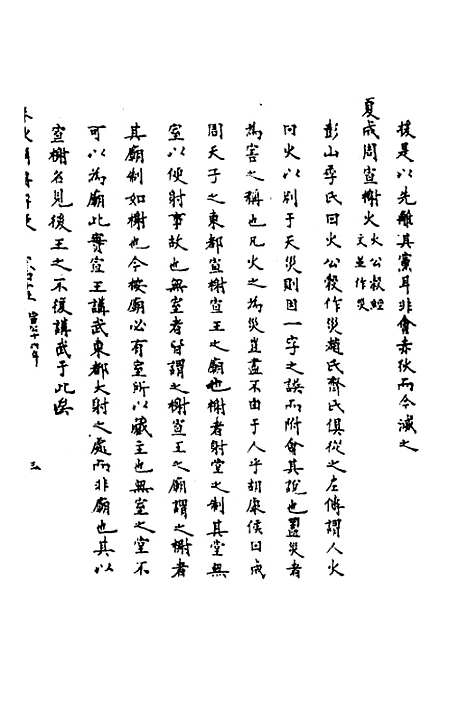 援是以先離其黨耳非會赤狄而今滅之
夏成周宣榭火火公穀經文並作災
彭山季氏曰火公穀作災趙氏齊氏俱從之左傳謂人火
曰火以别于天災則因一字之誤而附會其說也蓋災者
為害之稱也凡火之為災豈盡不由于人乎胡康侯曰成
周天子之東都宣榭宣王之廟也榭者射堂之制其堂無
室以便射事故也無室者皆謂之榭宣王之廟謂之榭者
其廟制如榭也今按廟必有室所以藏主也無室之堂不
可以為廟此實宣王講武東都大射之處而非廟也其以
宣榭名見後王之不復講武于此矣
宣公十六年